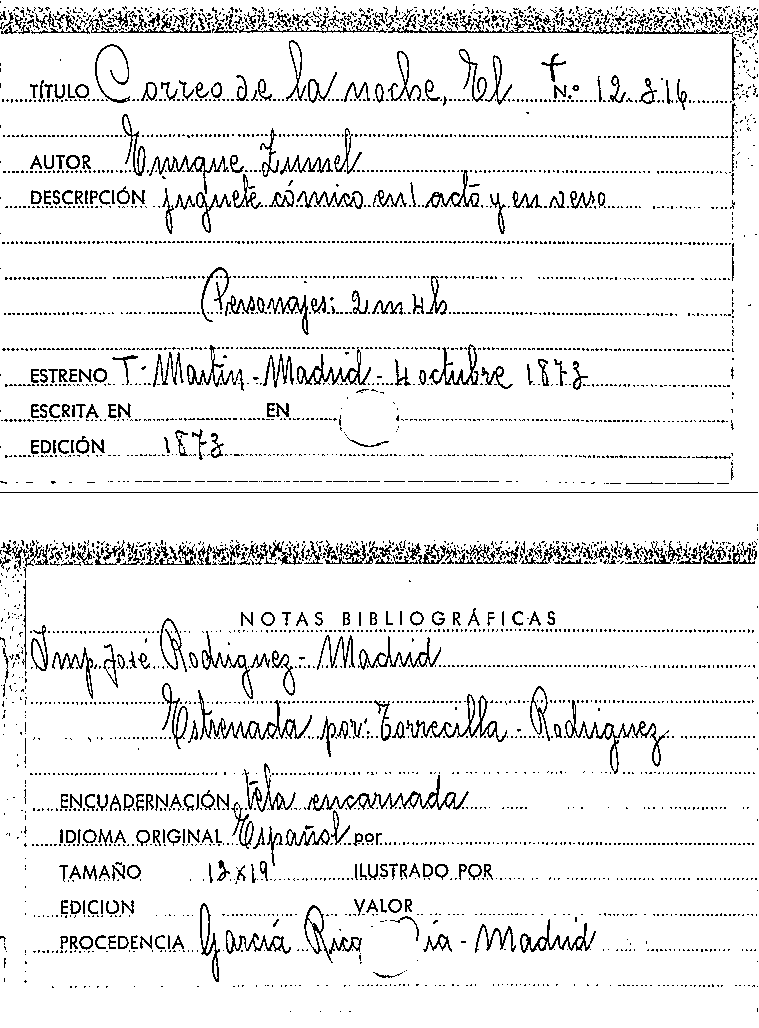 TÍTULO Correo de la noche, El N.º 12.816
AUTOR Enrique Zumel
DESCRIPCIÓN juguete cómico en 1 acto y en verso
Personajes: 2 m 4 h
ESTRENO T. Martin - Madrid - 4 octubre 1873
ESCRITA EN EN
EDICIÓN 1873
NOTAS BIBLIOGRÁFICAS
Imp. José Rodriguez - Madrid
Estrenada por: Torrecilla - Rodriguez
ENCUADERNACIÓN tela encarnada
IDIOMA ORIGINAL Español por
TAMAÑO 13 x 19 ILUSTRADO POR
EDICION VALOR
PROCEDENCIA García Rico ía - Madrid